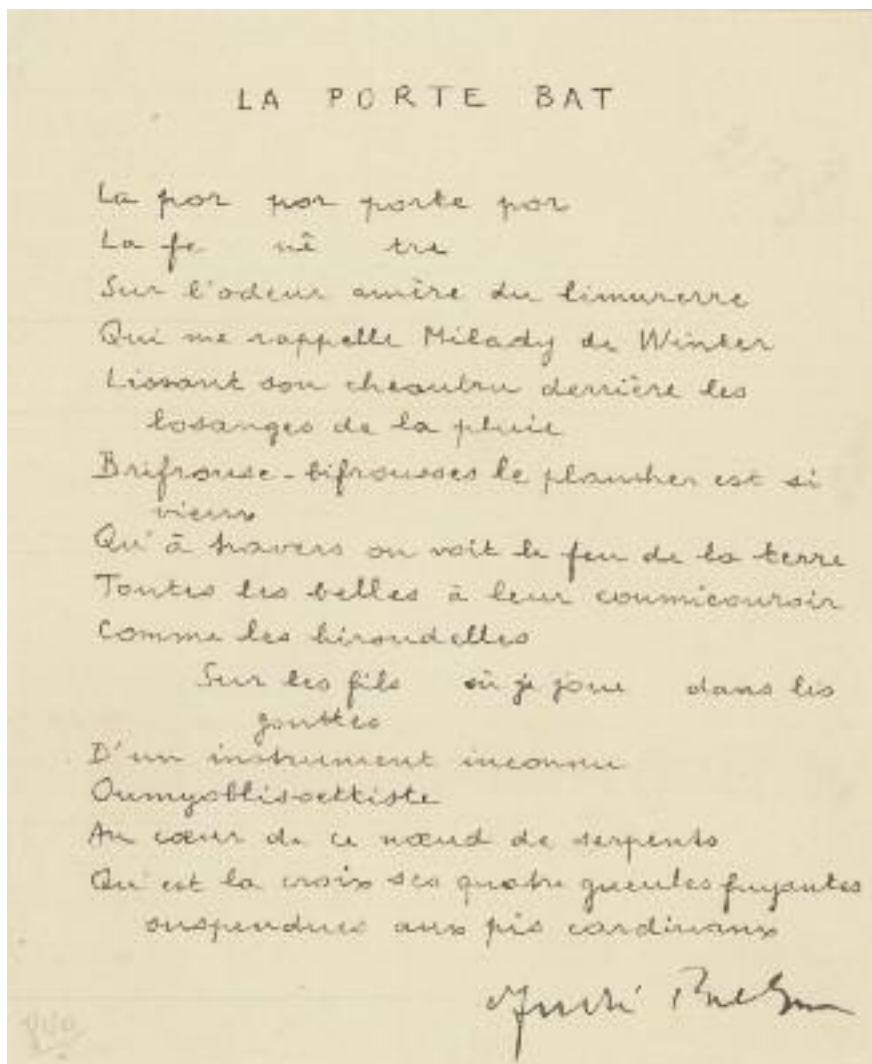 LA PORTE BAT
La por por porte por
La fe nê tre
Sur l'odeur amère du limurerre
Qui me rappelle Milady de Winter
Lissant son cheautru derrière les
losanges de la pluie
Brifrouse-bifrousses le plancher est si
vieux
Qu'à travers on voit le feu de la terre
Toutes les belles à leur coumicouroir
Comme les hirondelles
Sur les fils où je joue dans les
gouttes
D'un instrument inconnu
Oumyoblisoettiste
Au cœur de ce nœud de serpents
Qu'est la croix ses quatre gueules fuyantes
suspendues aux pis cardinaux
André Breton